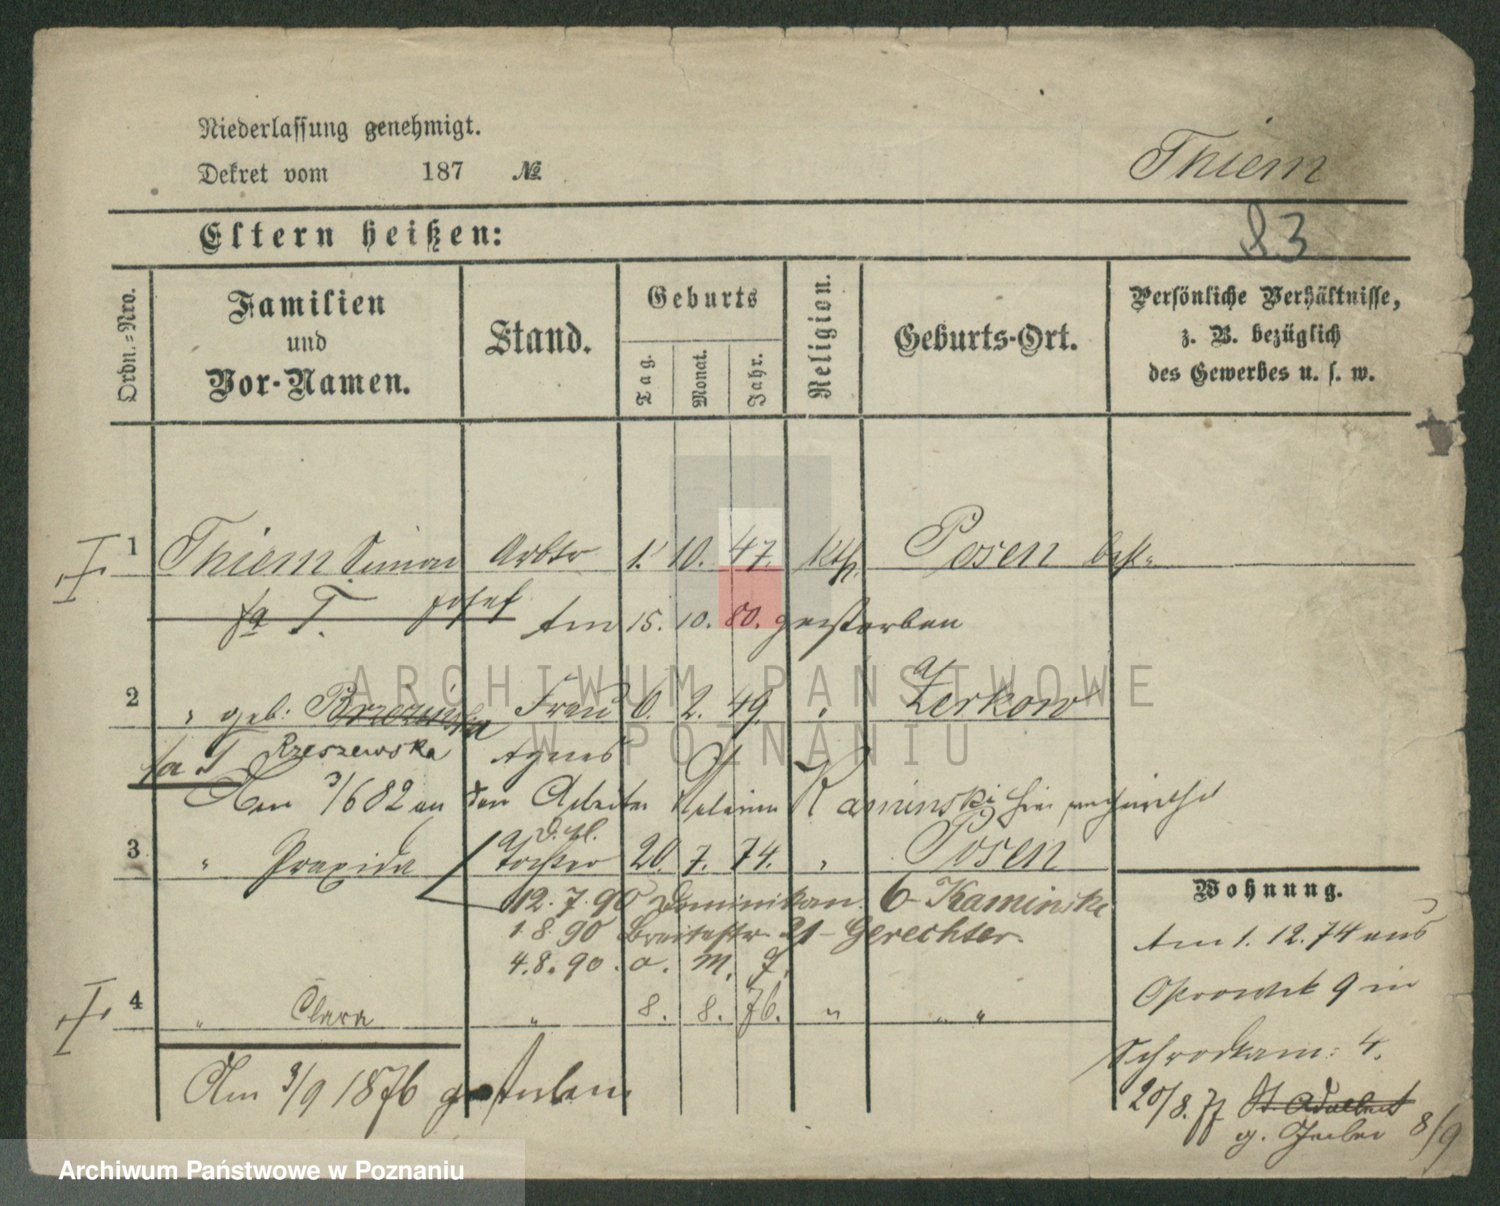 Niederlassung genehmigt.
Dekret vom 187 №
Thiem
83
Eltern heißen:
Ordn.=Nro.
Familien
und
Vor-Namen.
Stand.
Geburts
Tag.
Monat.
Jahr.
Religion.
Geburts-Ort.
Persönliche Verhältnisse,
z. B. bezüglich
des Gewerbes u. s. w.
1 Thiem Simon Arbtr 1. 10. 47. kth. Posen
fa T. Josef Am 15. 10. 80. gestorben
2 " geb: Brzezinska Frau 6. 2. 49. " Zerkow
fa T Rzeszewska Agnes
Am 3/6 82 an den Arbeiter Kaminski hier verheirathet
3 " Praxida Tochter 20. 7. 74. " Posen
12. 7. 90 Dominikan. 6 - Kaminske
1. 8. 90 Breitestr. 21 - Gerechter
4. 8. 90. a. M. 7.
4 " Clara " 8. 8. 76. " " "
Am 3/9 1876 gestorben
Wohnung.
Am 1. 12. 74 aus
Ostrowek 9 in
Schrodkam: 4.
20/8. 77 St. Adalbert
8/9
Archiwum Państwowe w Poznaniu
ARCHIWUM PAŃSTWOWE
W POZNANIU